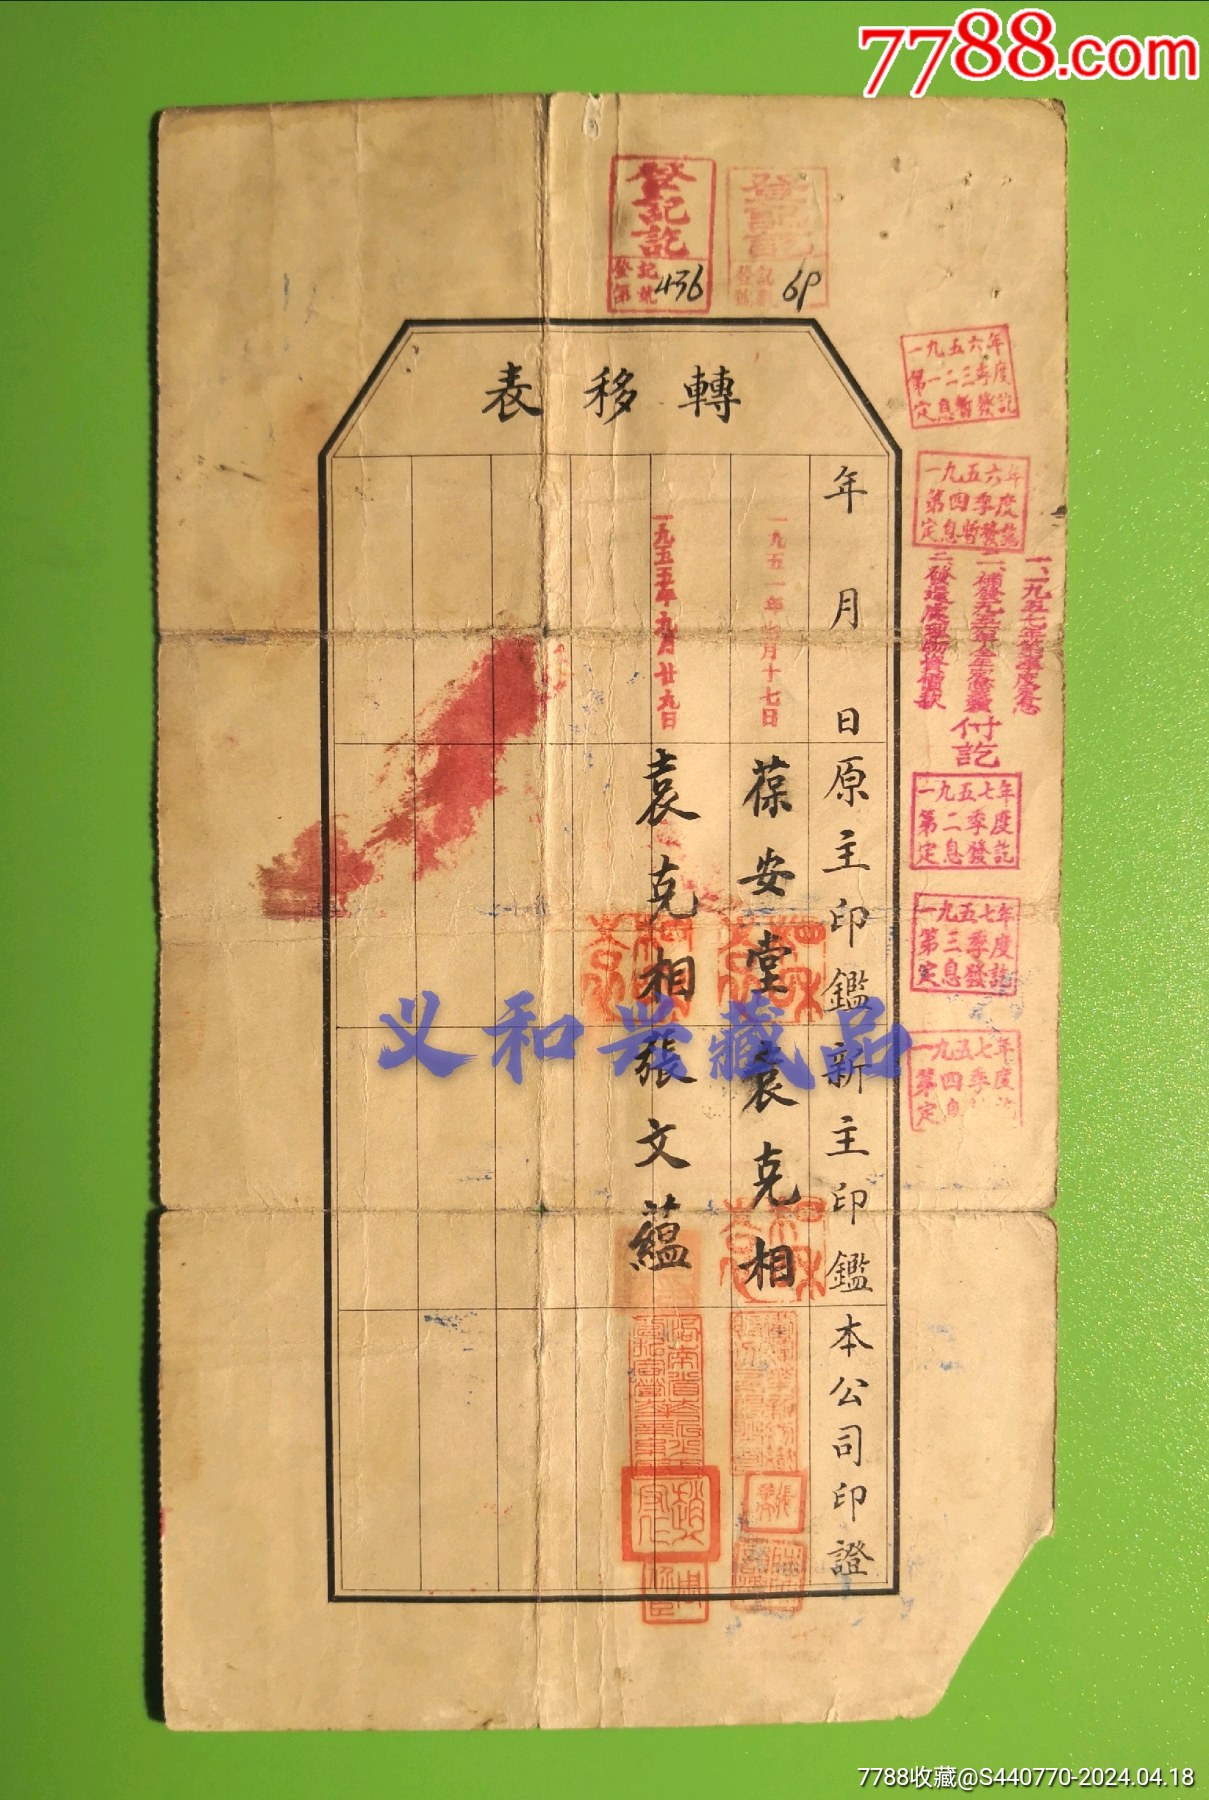 7788.com
登記訖
登記
第 號 436
登記訖
登記
第 號 69
轉移表
年月日
原主印鑑
新主印鑑
本公司印證
一九五一年七月十七日
葆安堂
袁克相
一九五五年九月廿九日
袁克相
張文蘊
一九五六年
第一二三季度
定息暫發訖
一九五六年
第四季度
定息暫發訖
付訖
一九五七年
第二季度
定息發訖
一九五七年
第三季度
定息發訖
一九五七年
第四季度
定息
义和兴藏品
7788收藏@S440770-2024.04.18